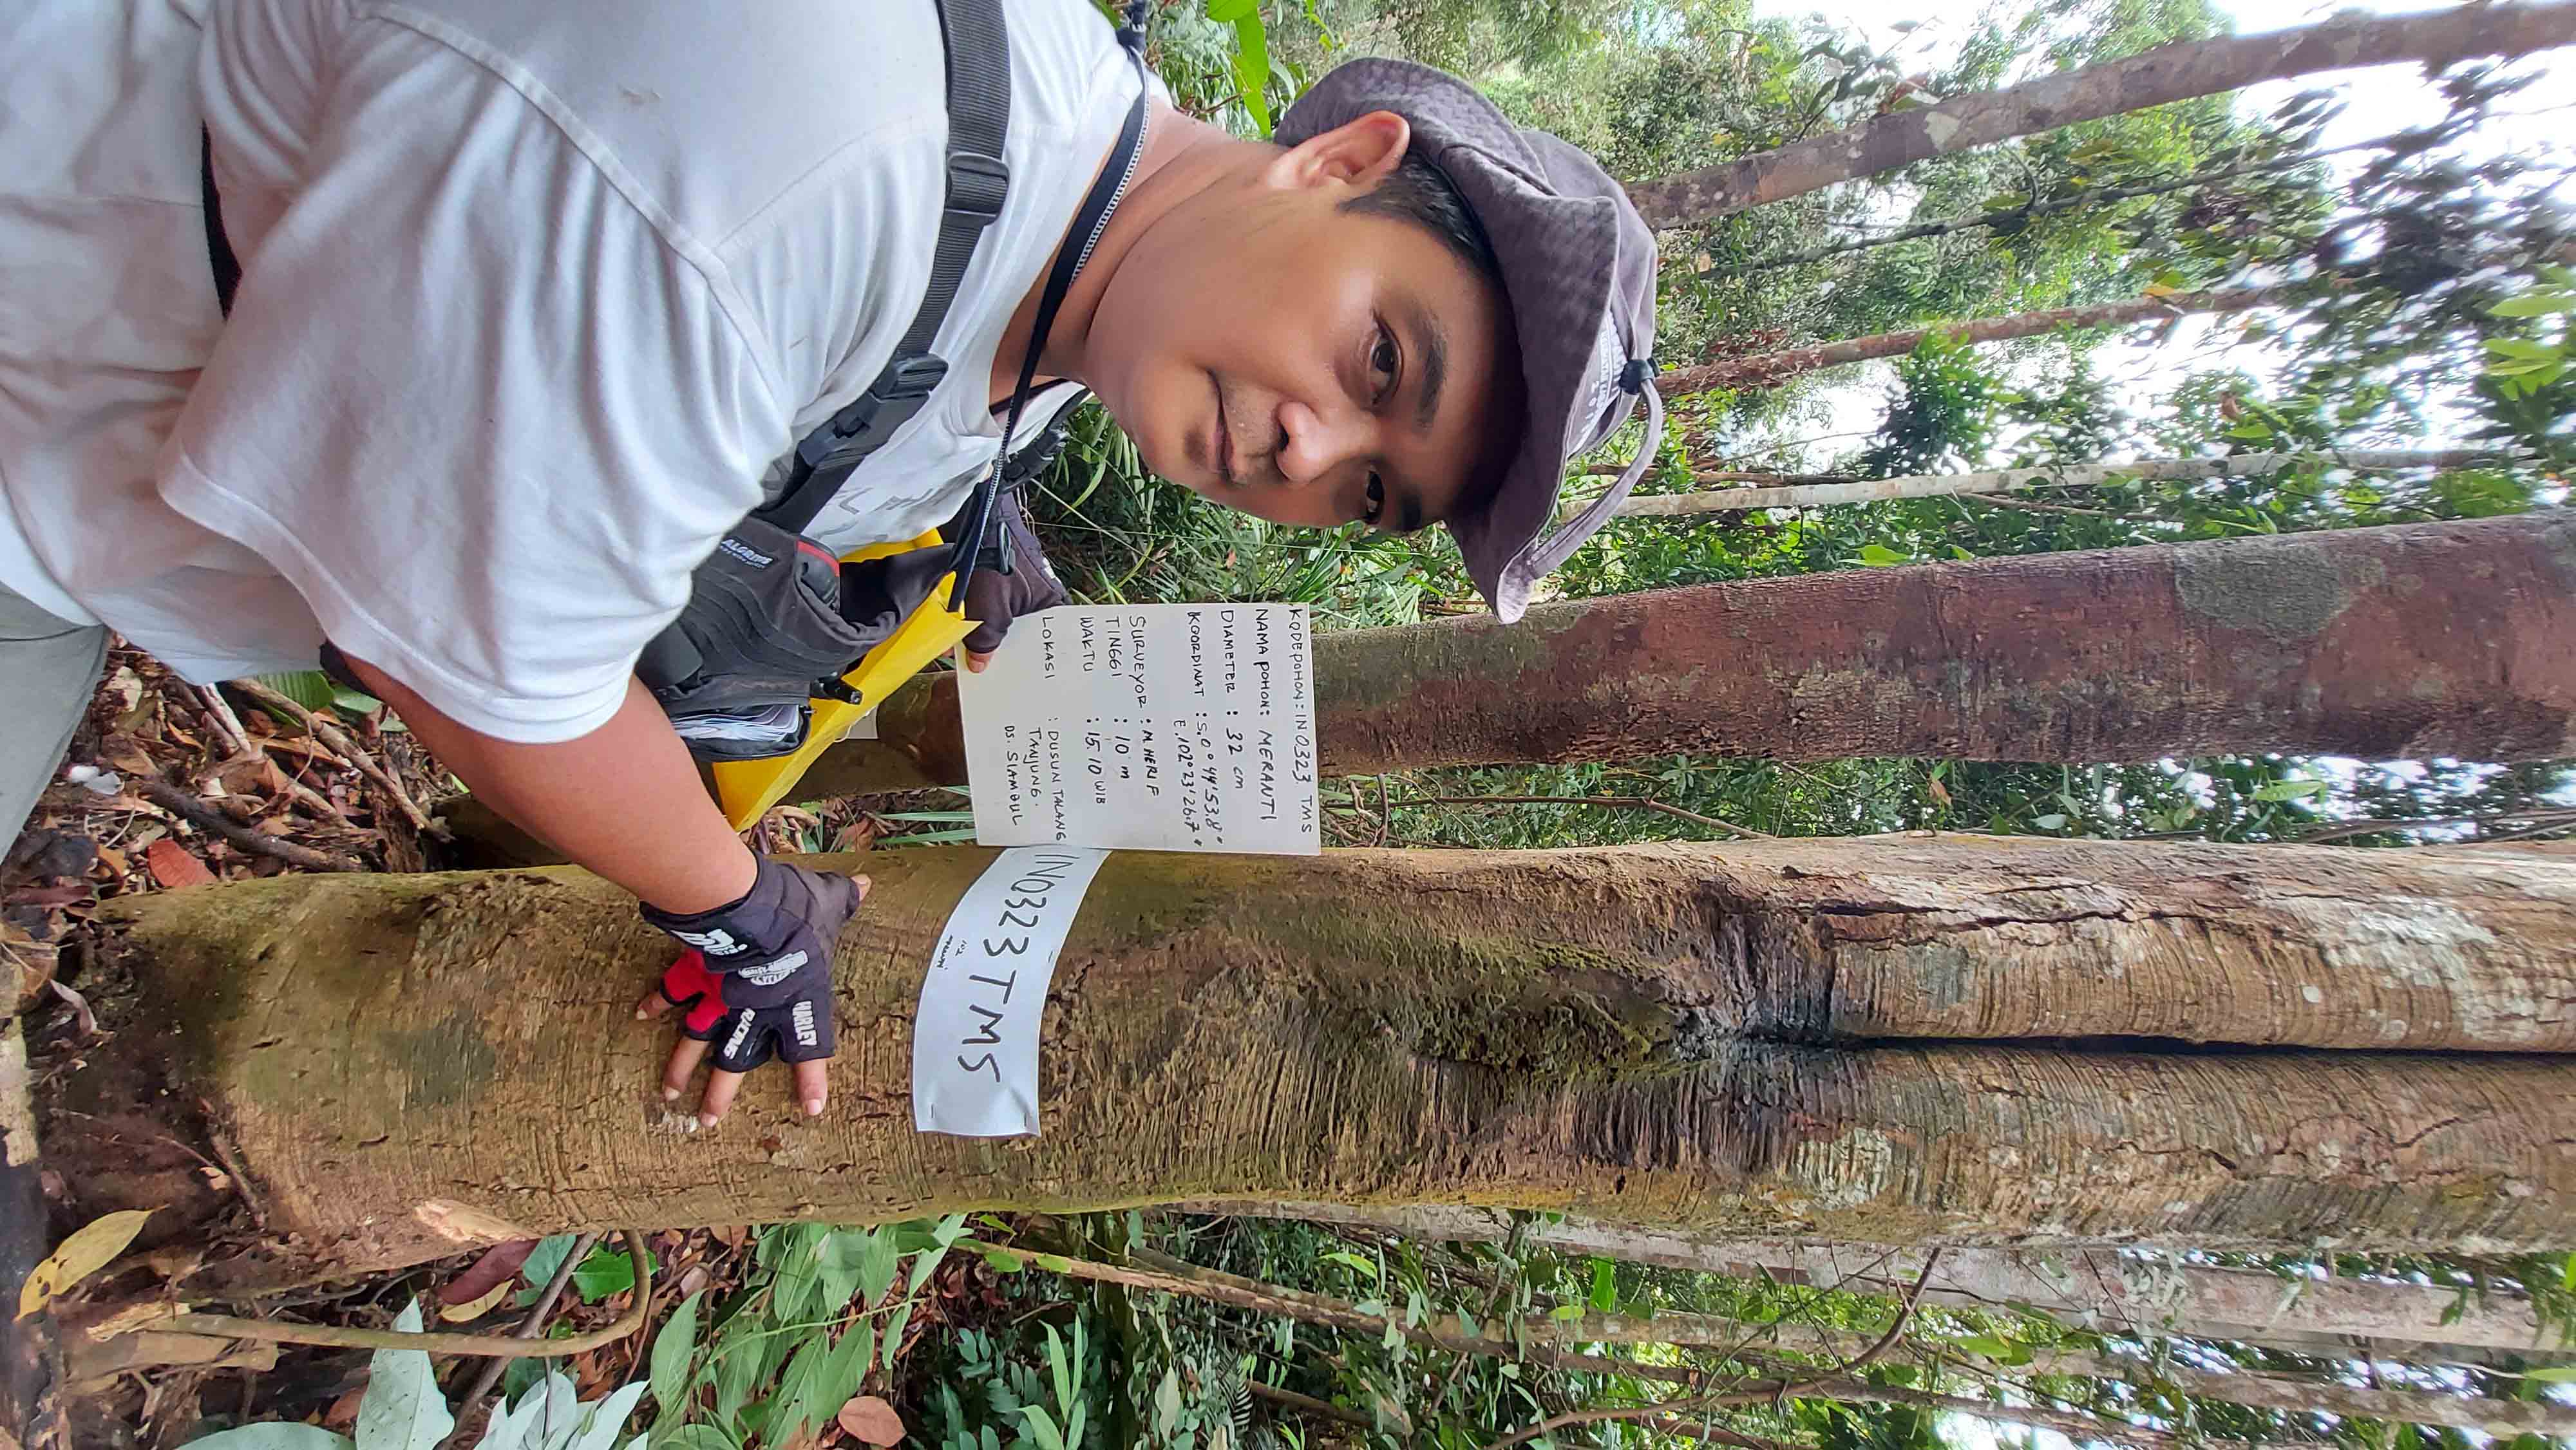 2017
KODE POHON : IN0323 TMS
NAMA POHON : MERANTI
DIAMETER : 32 cm
KOORDINAT : S.0°44'53.8"
E.102°23'26.7"
SURVEYOR : M HERI F
TINGGI : 10 m
WAKTU : 15.10 WIB
LOKASI : DUSUN TALANG
TANJUNG.
DS. SIAMBUL
IN0323 TMS
102
HARLEY
RACING